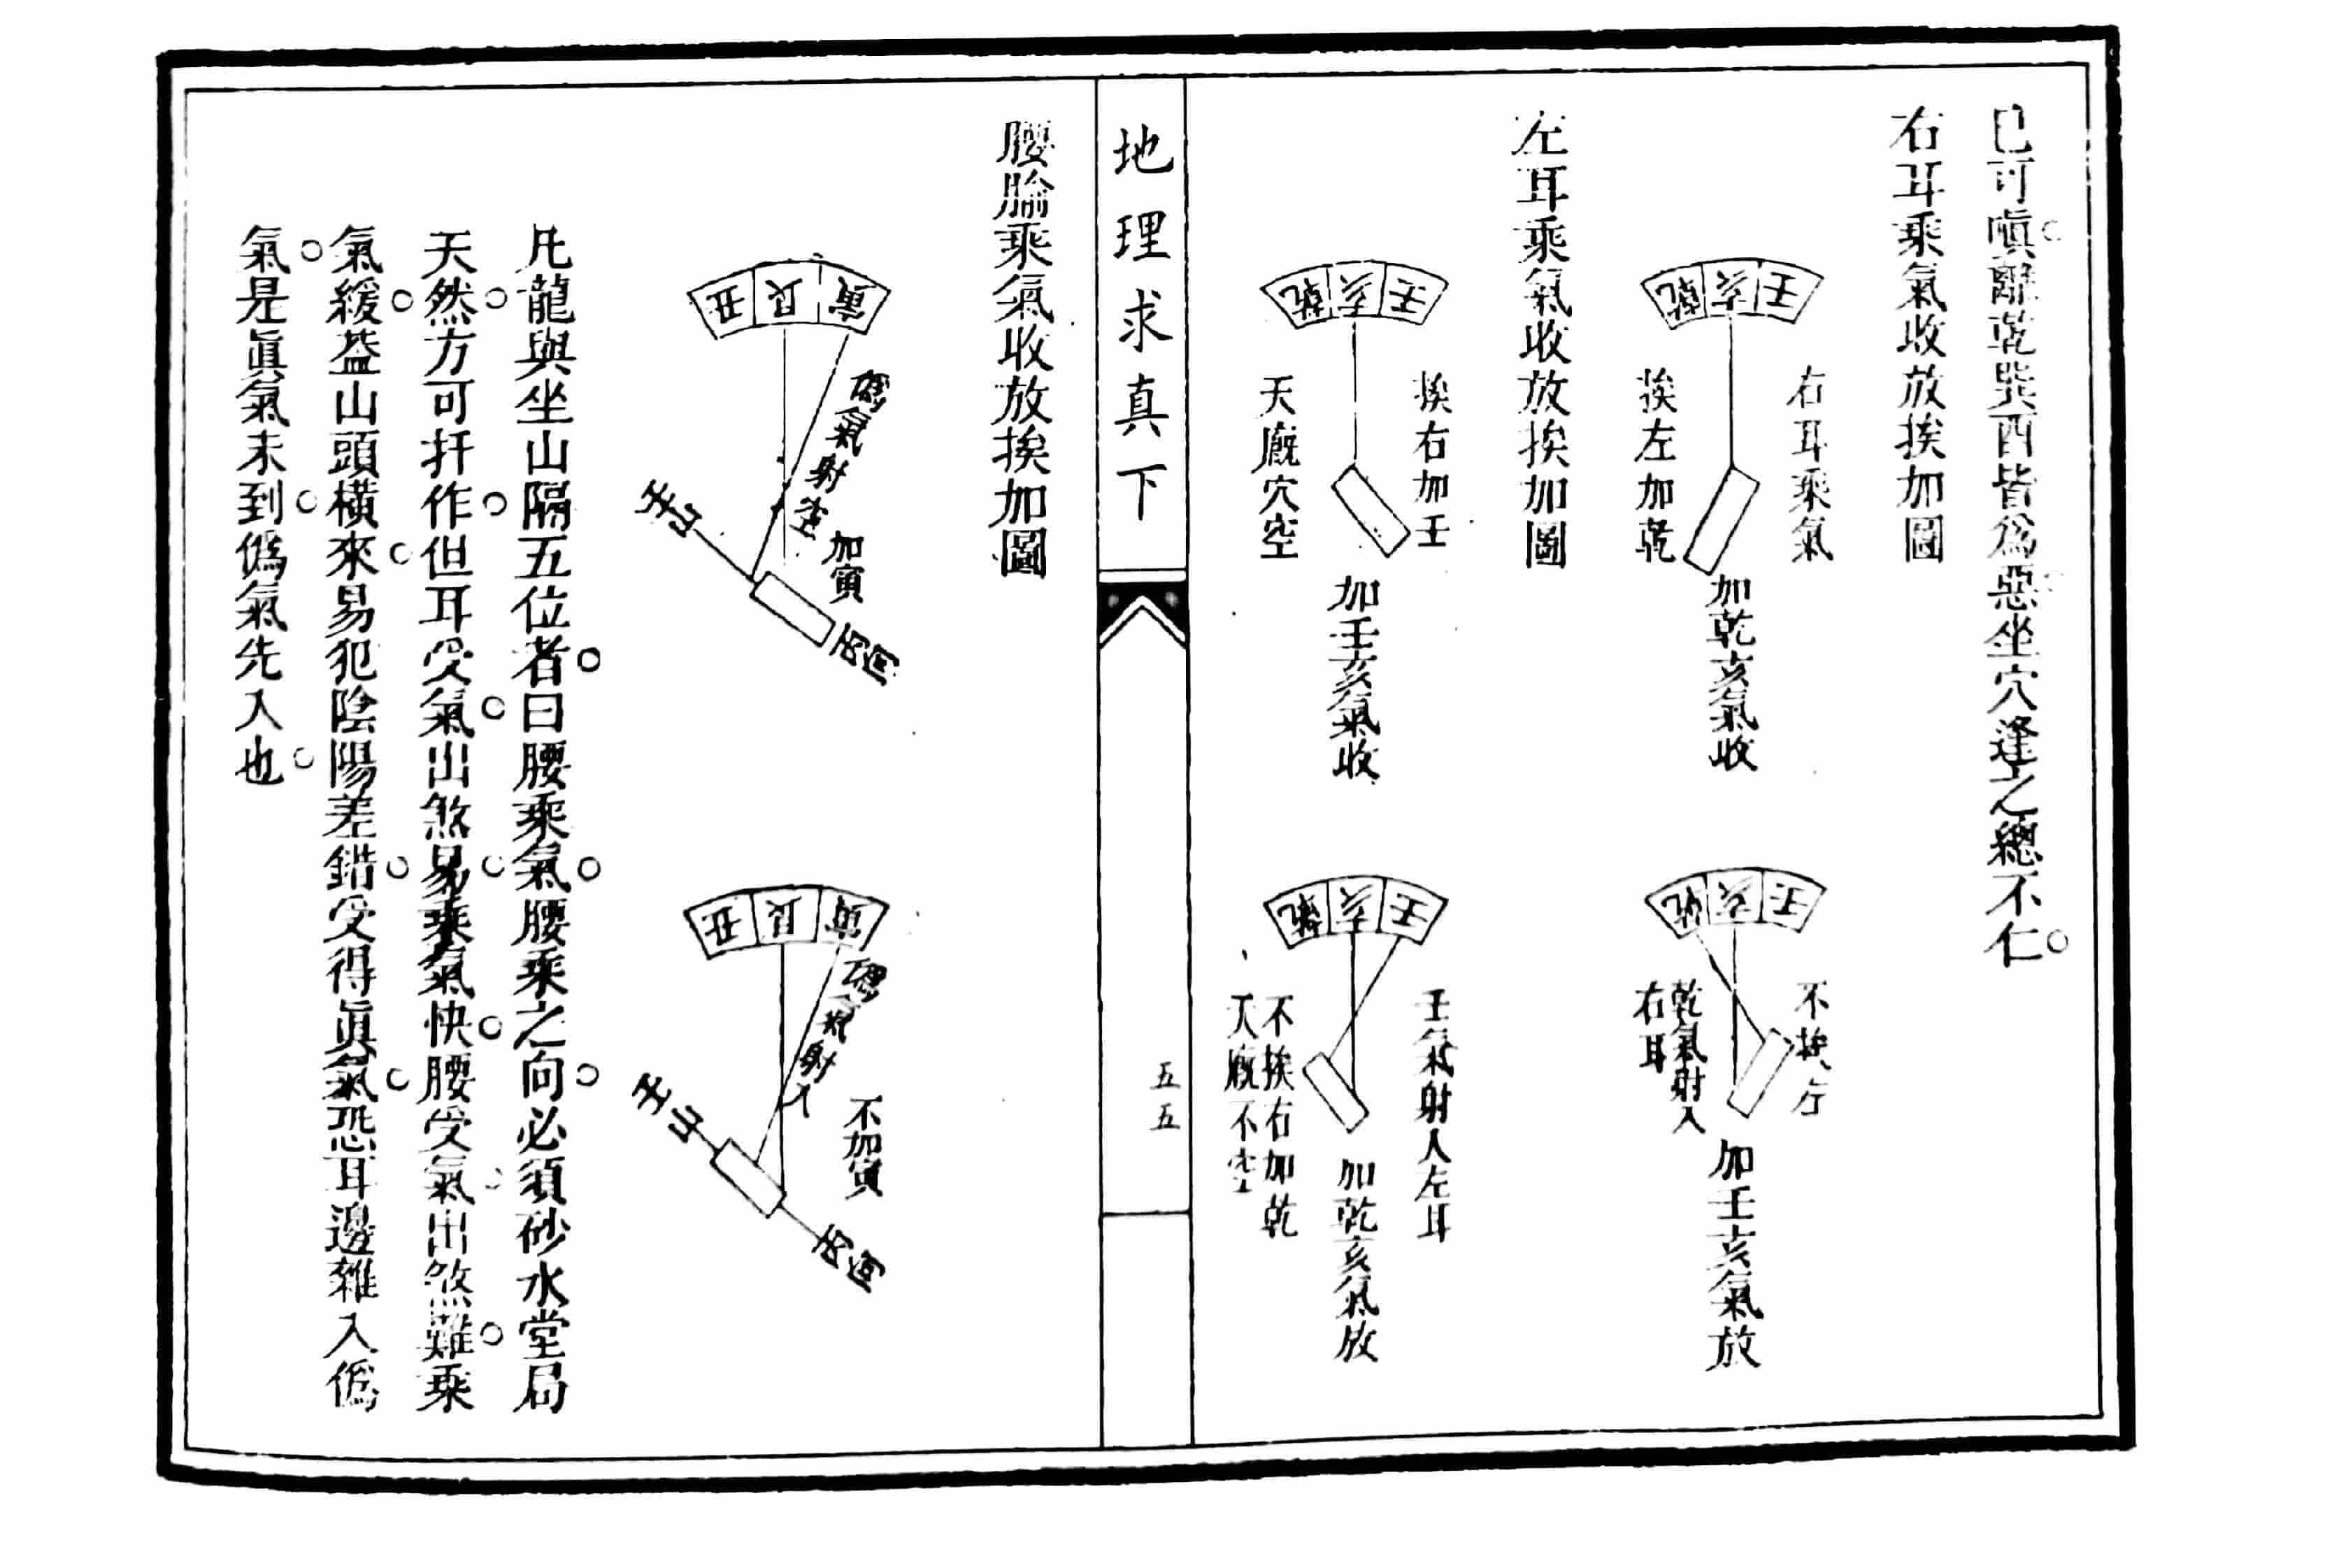 已可嗔離乾巽酉皆為惡坐穴逢之總不仁
右耳乘氣收放挨加圖
壬亥乾
右耳乘氣
挨左加乾
加乾亥氣收
壬亥
不挨左
乾氣射入
右耳
加壬亥氣放
左耳乘氣收放挨加圖
壬亥乾
挨右加壬
天廐穴空
加壬亥氣收
壬亥乾
壬氣射入左耳
不挨右加乾
天廐不空
加乾亥氣放
地理求真下
五五
腰腧乘氣收放挨加圖
寅艮丑
氣射
加寅
壬山
丙向
寅艮丑
氣射入
不加寅
壬山
丙向
凡龍與坐山隔五位者曰腰乘氣腰乘之向必須砂水堂局
天然方可扦作但耳受氣出煞易乘氣快腰受氣出煞難乘
氣緩蓋山頭橫來易犯陰陽差錯受得眞氣恐耳邊雜入僞
氣是眞氣未到僞氣先入也